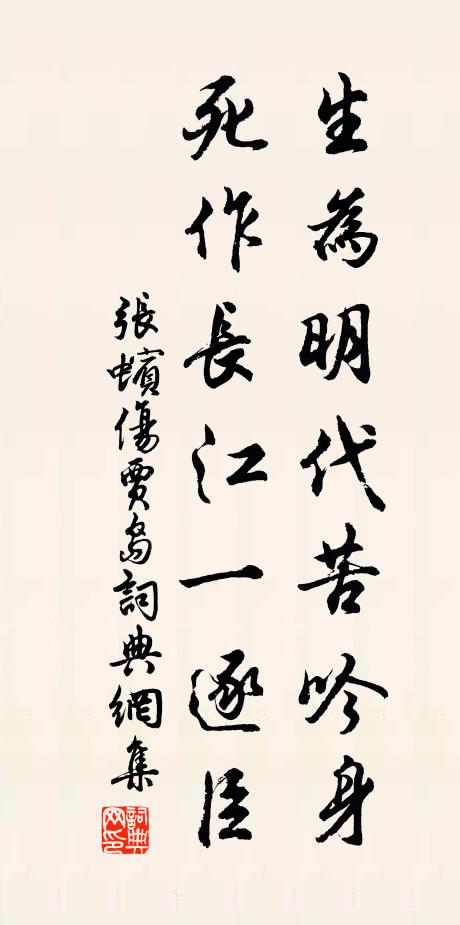 生為明代苦吟身
死作長江一逐臣
張蠙傷賈島詞典網集
詞典網印